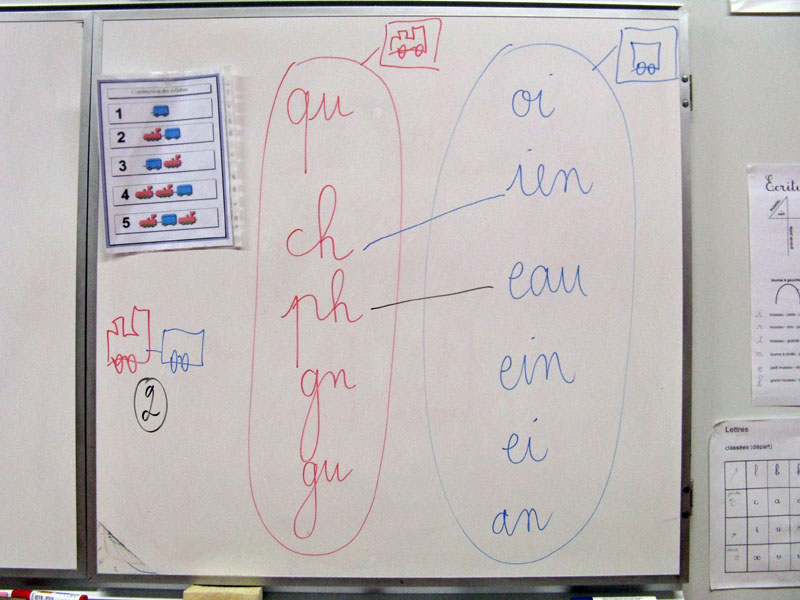 1
2
3
4
5
2
qu
ch
ph
gn
gu
oi
ien
eau
ein
ei
an
Lettres
classées (départ)